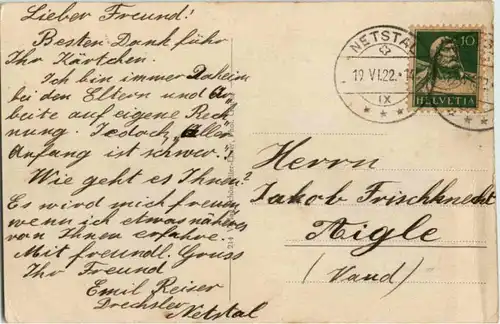 Lieber Freund!
Besten Dank führ
Ihr Kärtchen.
Ich bin immer Daheim
bei den Eltern und Ar-
beite auf eigene Rech
nung. Jedoch, „Aller
Anfang ist schwer."
Wie geht es Ihnen?
Es wird mich freuen
wenn ich etwas näheres
von Ihnen erfahre.
Mit freundl. Gruss
Ihr Freund
Emil Reiser
Drechsler
Netstal
214
NETSTAL
19.VI.22.-1
IX
10
HELVETIA
Herrn
Jakob Frischknecht
Aigle
(Vaud)